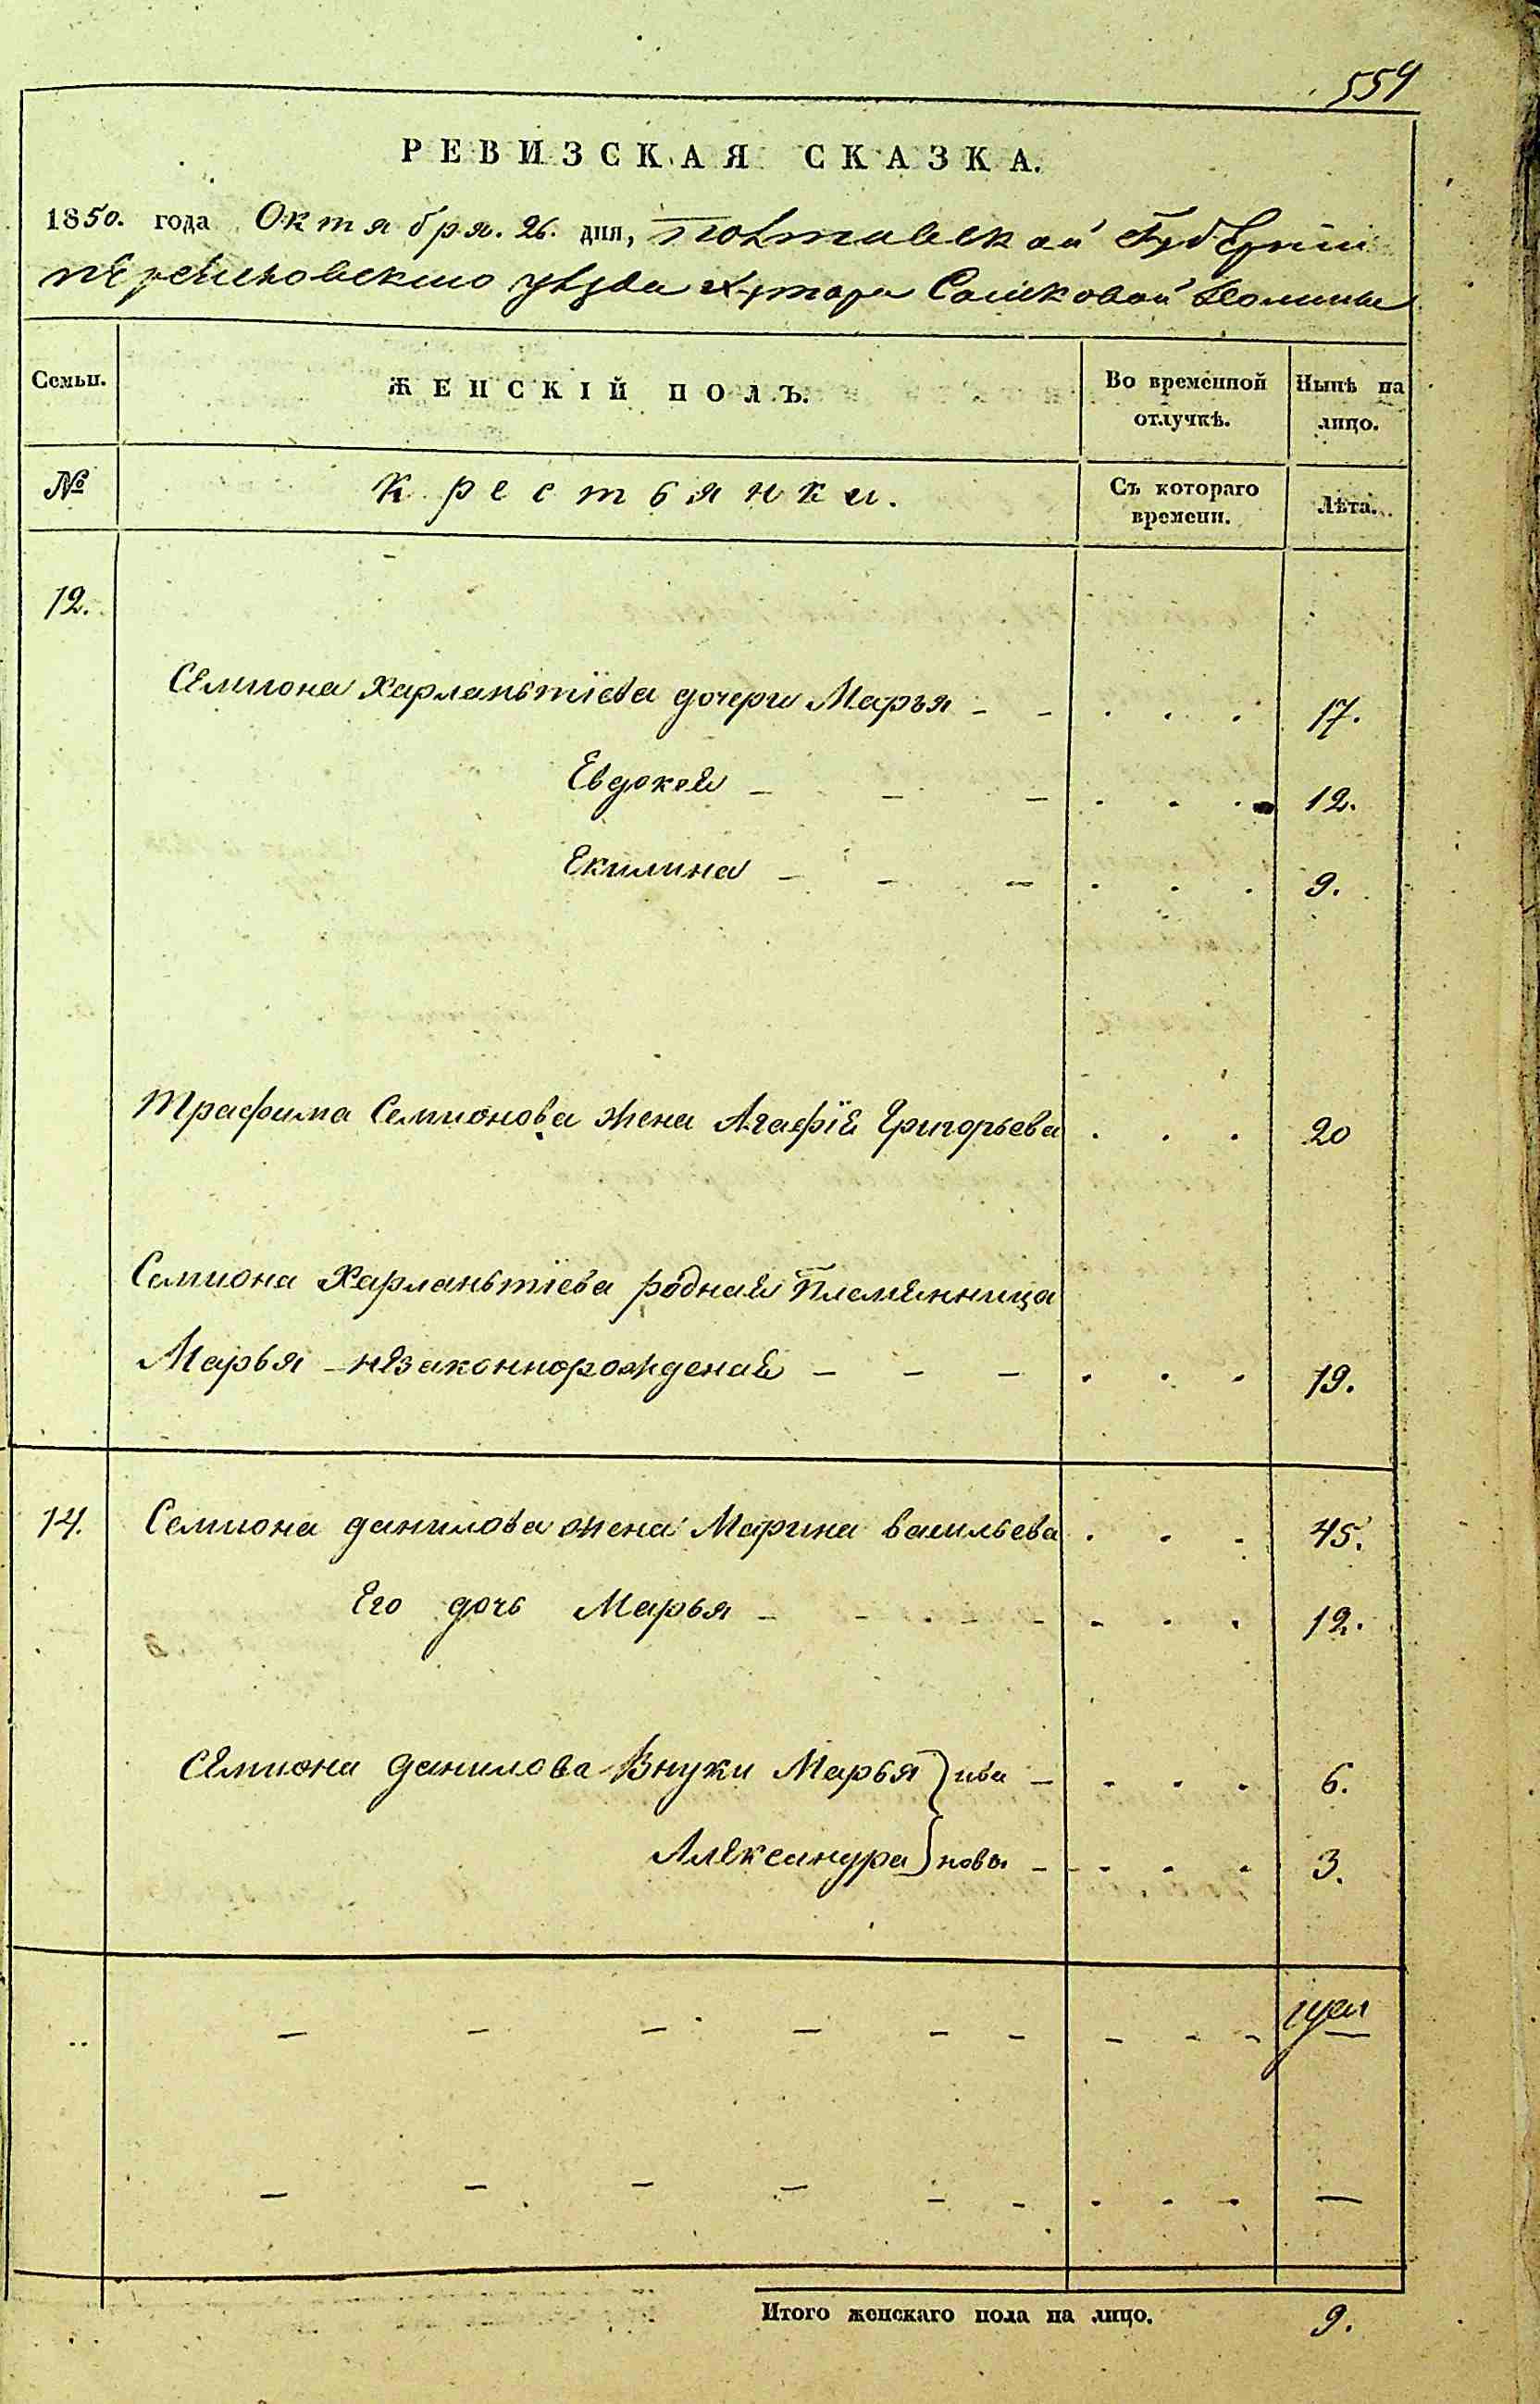 559
РЕВИЗСКАЯ СКАЗКА.
1850. года Октября. 26. дня, Полтавской Губернии
уѣзда Хутора Сошковой Долины
Семьи.
ЖЕНСКІЙ ПОЛЪ.
Во временной отлучкѣ.
Нынѣ на лицо.
№
Крестьянки.
Съ котораго времени.
Лѣта.
12.
Семиона Харланьтіева дочери Марья - - . . . 17.
Евдокея - - - . . . 12.
Екилина - - - . . . 9.
Трафима Семионова жена Агафіе Григорьева . . . 20
Семиона Харланьтіева родная Племенница
Марья - незаконнорожденая - - - . . . 19.
14. Семиона данилова жена Марина васильева . . . 45.
Его дочь Марья - - - - . . . 12.
Семиона данилова Внуки Марья } ива - . . . 6.
Александра } новы - . . . 3.
- - - - - - - - -
- - - - - - . . . —
Итого женскаго пола на лицо. 9.